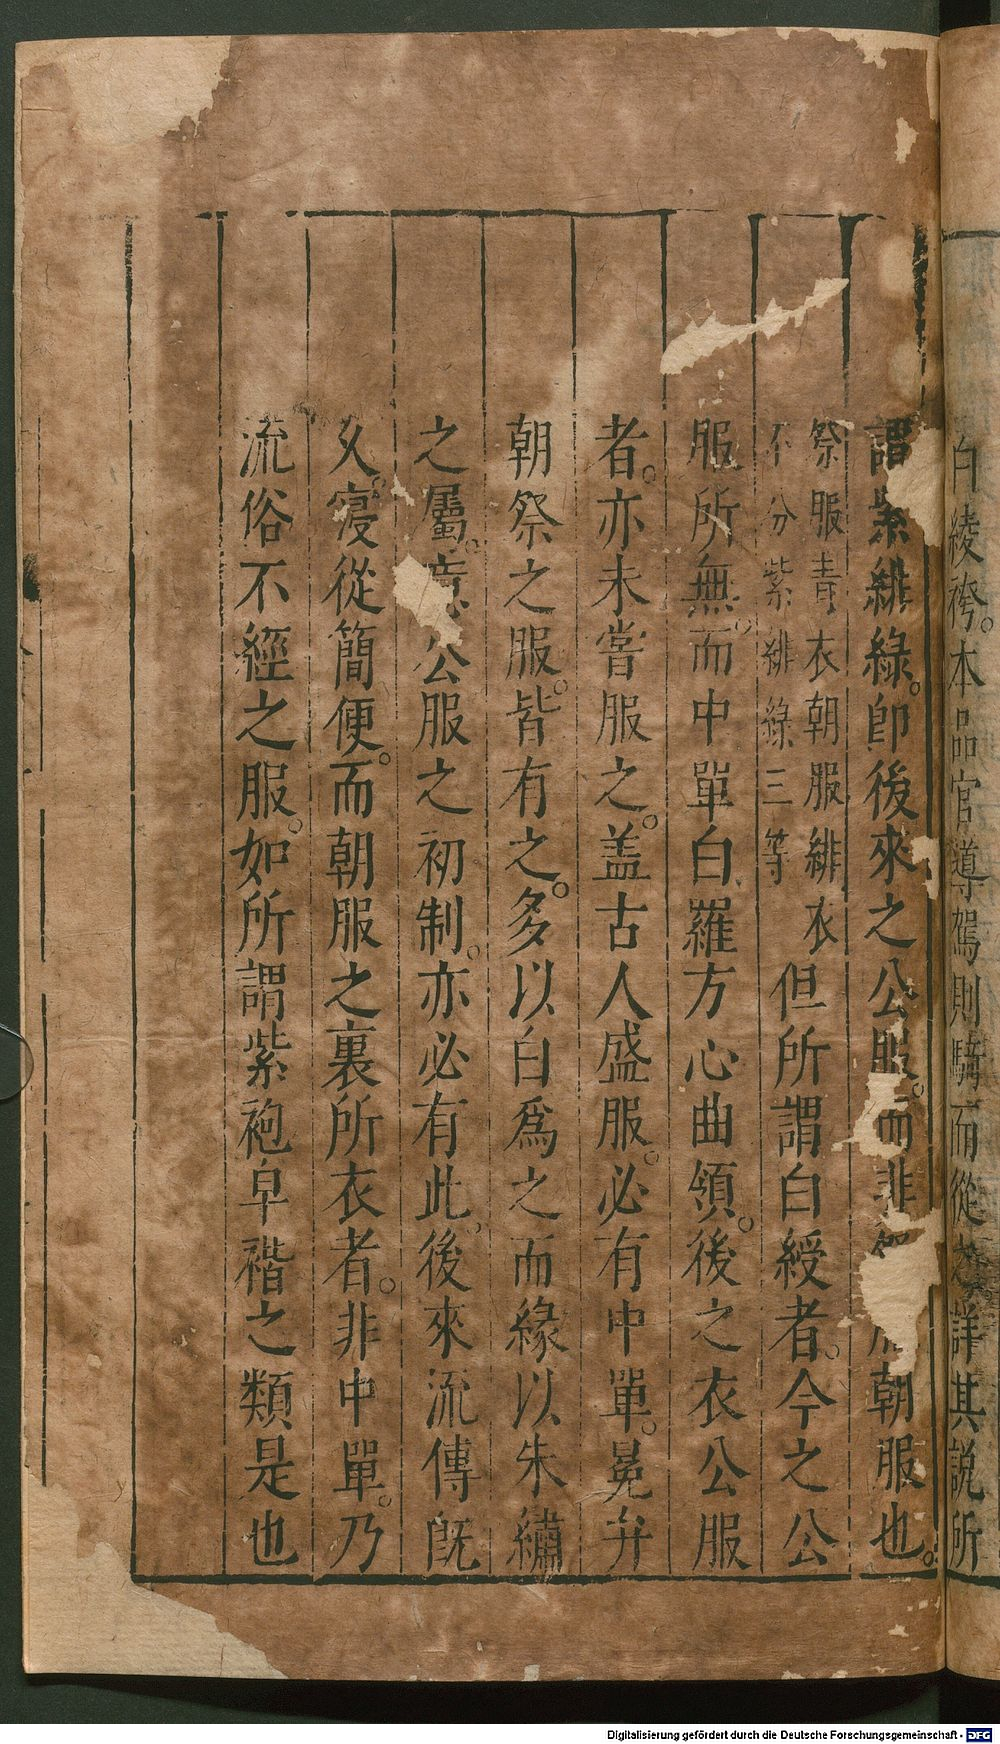 白綾袴。本品官導駕則騎而從之詳其說所
謂紫緋綠。即後來之公服。而非 朝服也。
祭服青衣朝服緋衣
不分紫緋綠三等
但所謂白綬者。今之公
服所無。而中單白羅方心曲領。後之衣公服
者。亦未嘗服之。盖古人盛服。必有中單。冕弁
朝祭之服。皆有之。多以白爲之而緣以朱繡
之屬。 公服之初制。亦必有此。後來流傳旣
乆。寖從簡便。而朝服之裏所衣者。非中單。乃
流俗不經之服。如所謂紫袍皁褶之類是也
Digitalisierung gefördert durch die Deutsche Forschungsgemeinschaft - DFG